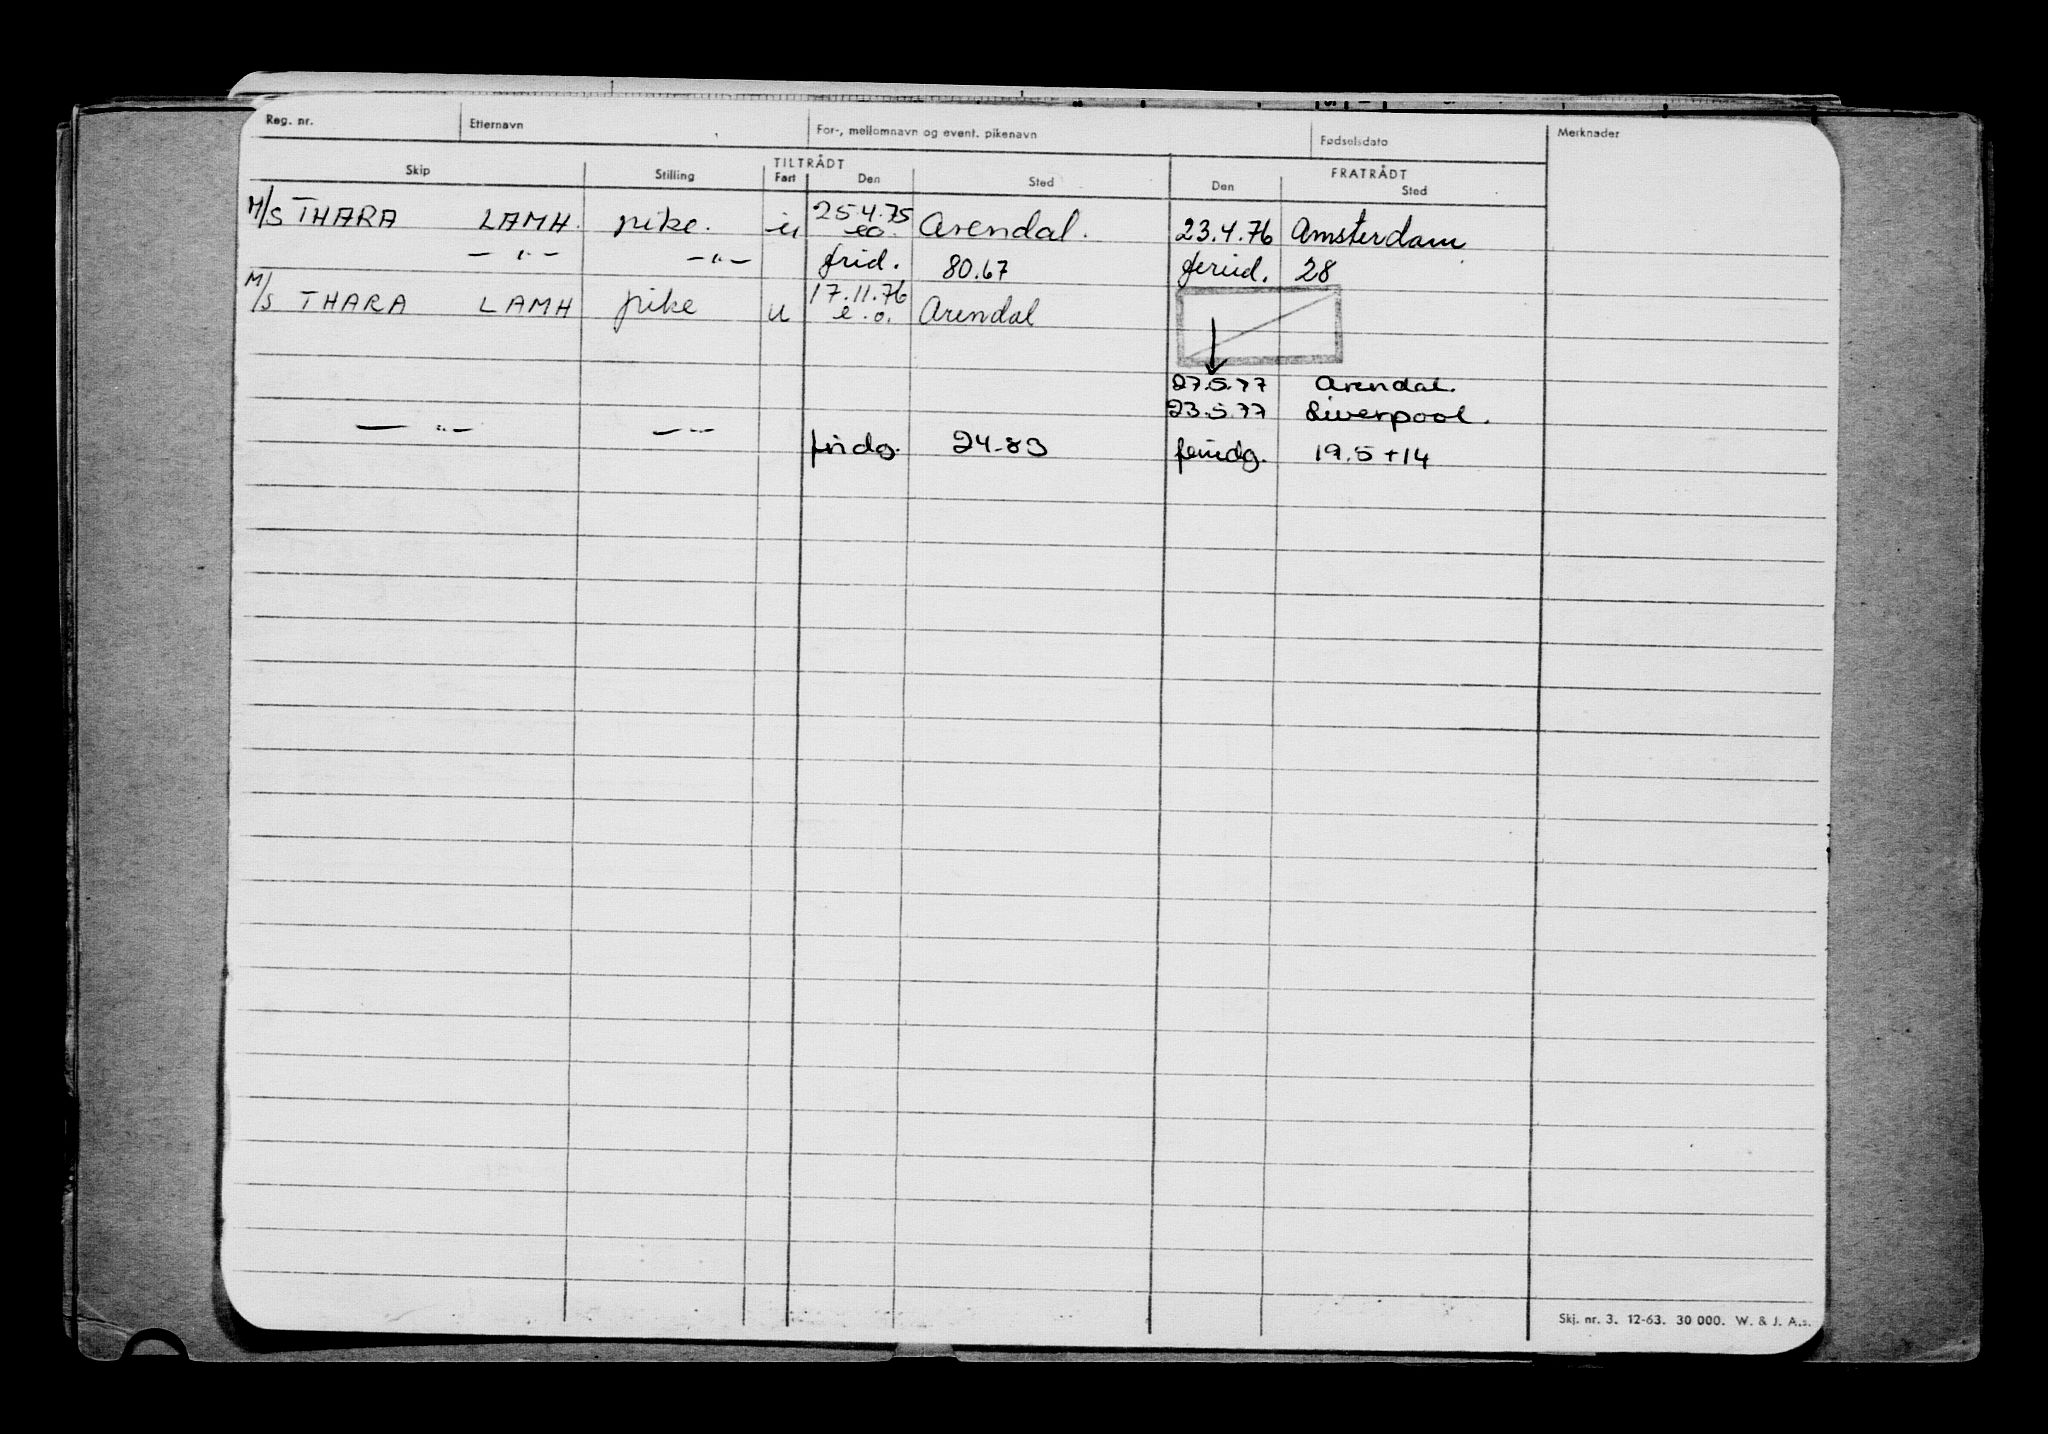 Reg. nr. Etternavn For-, mellomnavn og event. pikenavn Fødselsdato Merknader
TILTRÅDT FRATRÅDT
Skip Stilling Fart Den Sted Den Sted
M/S THARA LAMH. pike. u 25.4.75 Arendal. 23.4.76 Amsterdam
eo.
— " — — " — frid. 80.67 feried. 28
M/S THARA LAMH pike u 17.11.76 Arendal
e.o.
27.5.77 Arendal.
23.5.77 Liverpool.
— " — — " — fridg. 24.83 feridg. 19.5 + 14
Skj. nr. 3. 12-63. 30 000. W. & J. A.s.